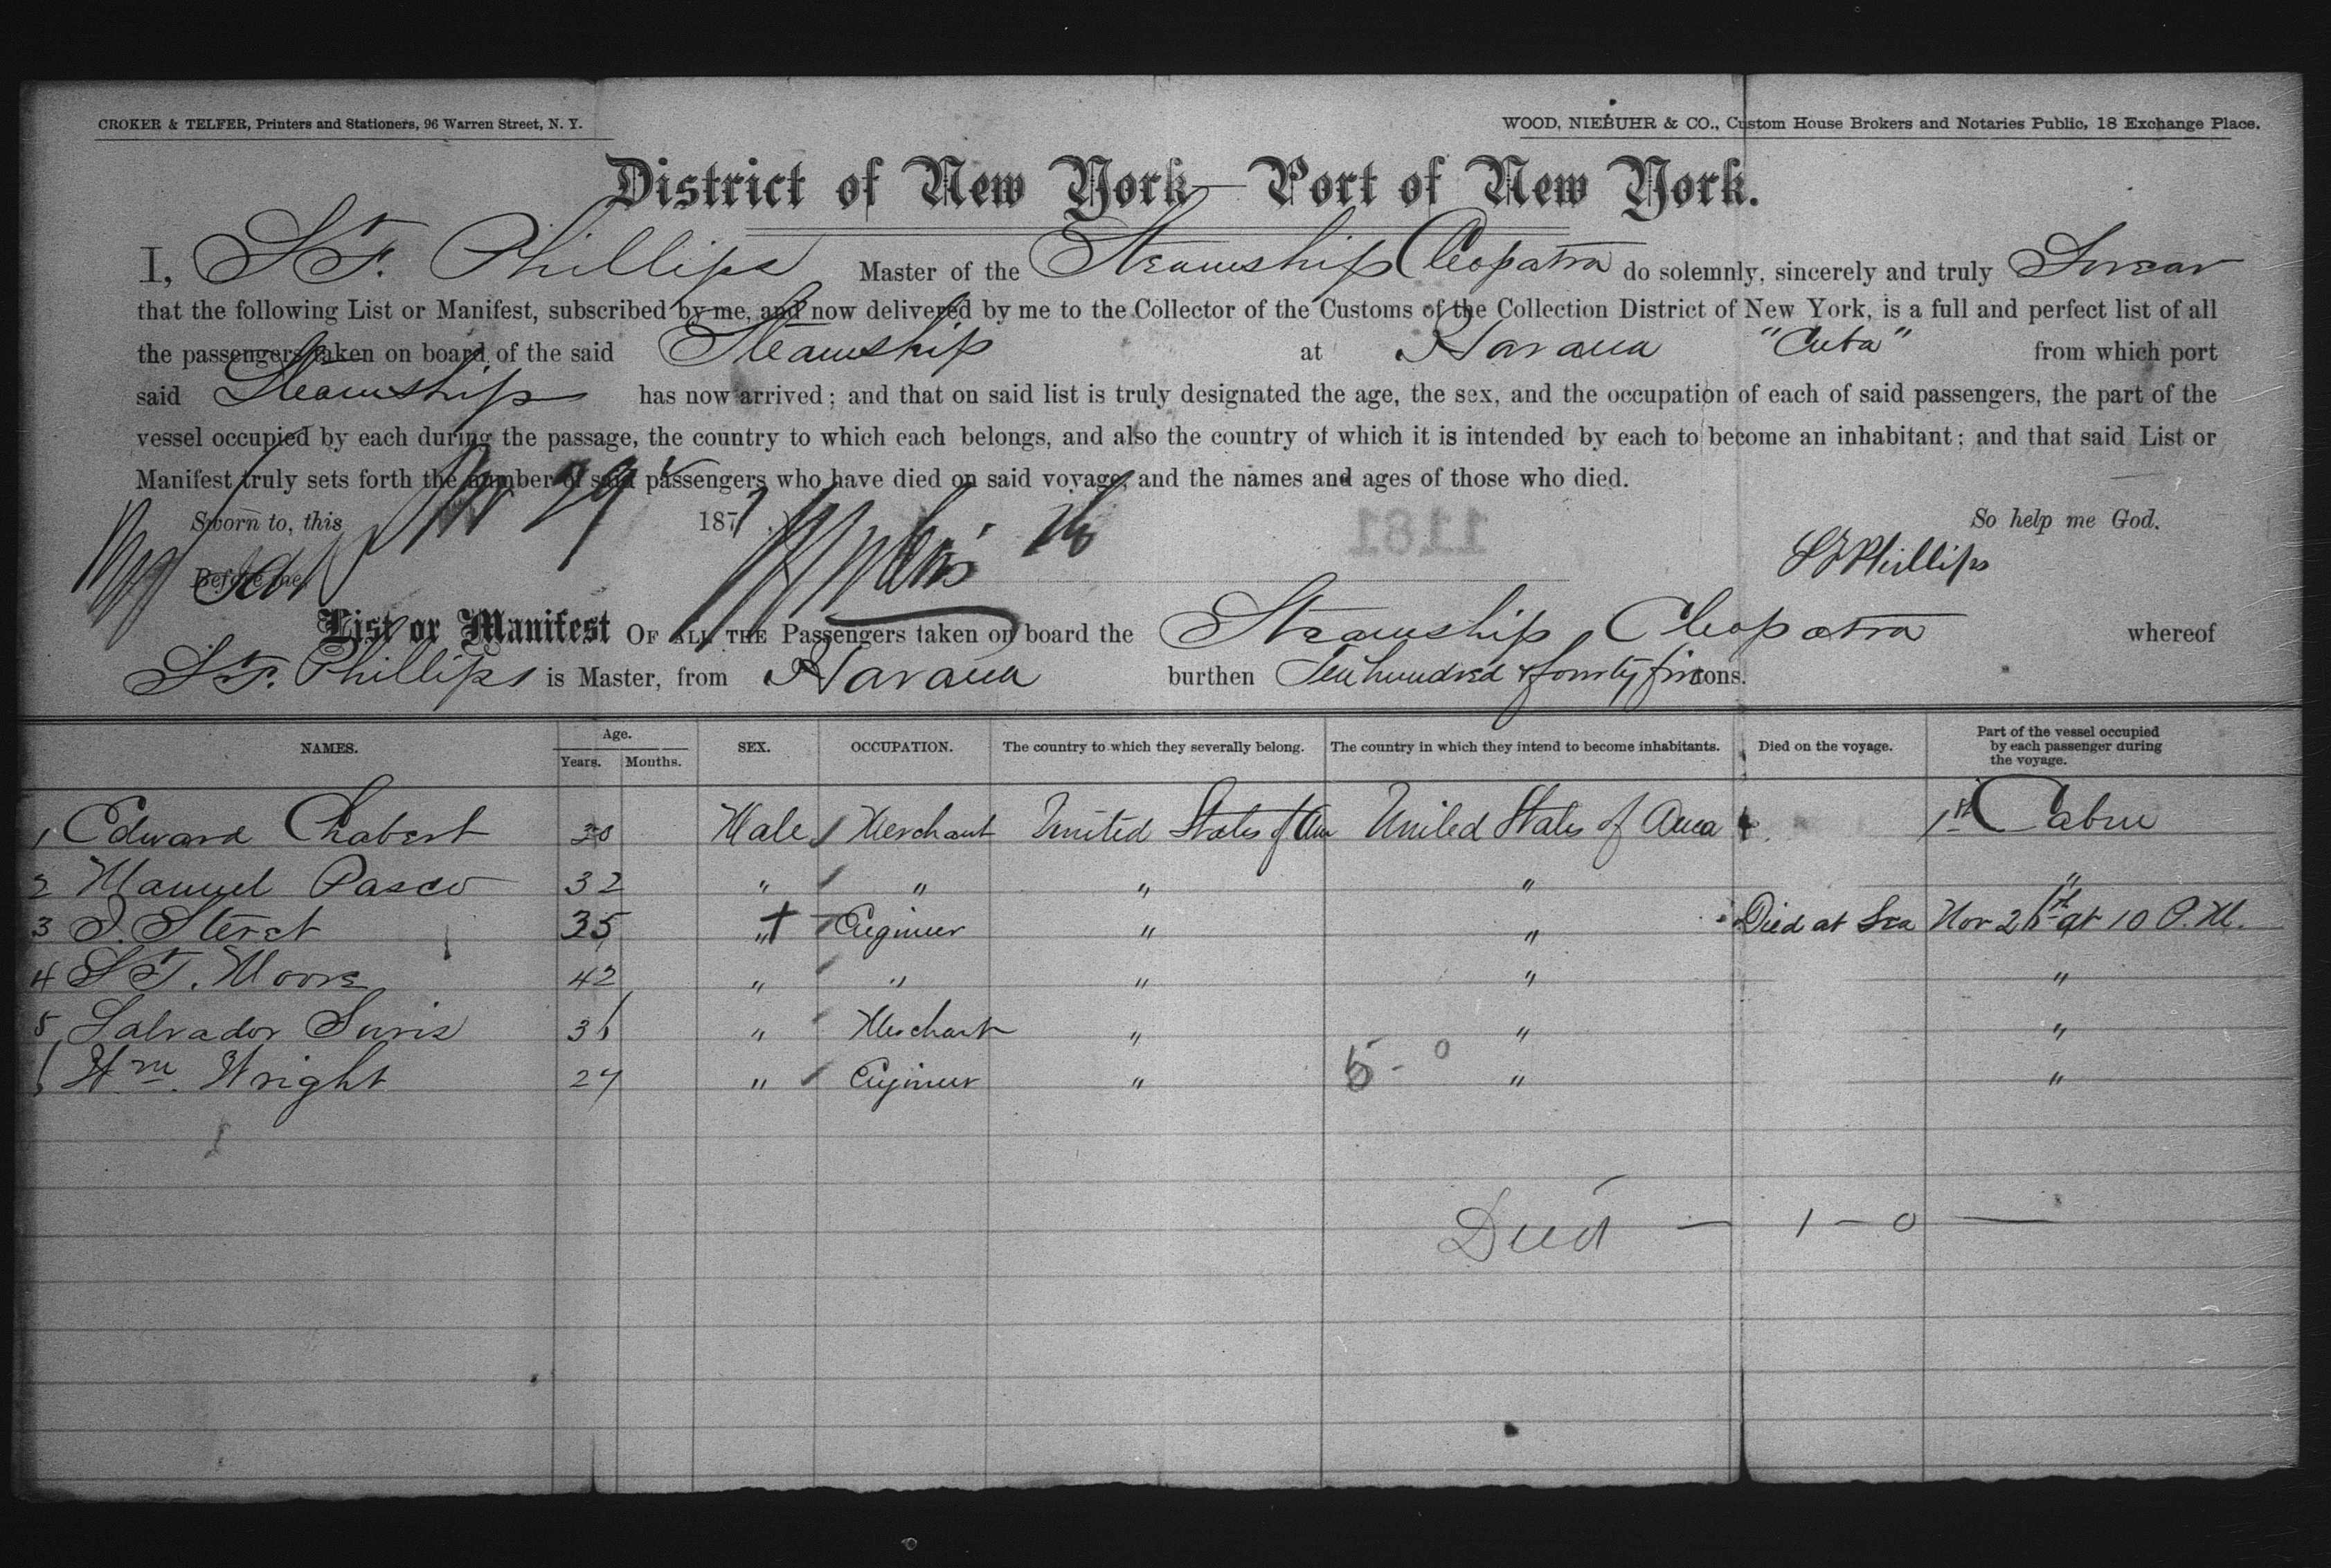 CROKER & TELFER, Printers and Stationers, 96 Warren Street, N. Y.
WOOD, NIEBUHR & CO., Custom House Brokers and Notaries Public, 18 Exchange Place.
District of New York—Port of New York.
I, S F. Phillips Master of the Steamship Cleopatra do solemnly, sincerely and truly Swear
that the following List or Manifest, subscribed by me, and now delivered by me to the Collector of the Customs of the Collection District of New York, is a full and perfect list of all
the passengers taken on board of the said Steamship at Havana "Cuba" from which port
said Steamship has now arrived; and that on said list is truly designated the age, the sex, and the occupation of each of said passengers, the part of the
vessel occupied by each during the passage, the country to which each belongs, and also the country of which it is intended by each to become an inhabitant; and that said List or
Manifest truly sets forth the number of said passengers who have died on said voyage, and the names and ages of those who died.
Sworn to, this Nov 29 1877 So help me God.
1181
Before me, S F Phillips
List or Manifest OF ALL THE Passengers taken on board the Steamship Cleopatra whereof
S F. Phillips is Master, from Havana burthen Ten hundred & fourty five tons.
NAMES. Age. Years. Months. SEX. OCCUPATION. The country to which they severally belong. The country in which they intend to become inhabitants. Died on the voyage. Part of the vessel occupied by each passenger during the voyage.
1 Edward Chabert 30 Male Merchant United States of Am United States of Amca 1st Cabin
2 Manuel Pasco 32 " " " " "
3 J. Steret 35 " + Engineer " " Died at Sea Nov 26th at 10 P.M.
4 S F. Moore 42 " " " " "
5 Salvador Suris 36 " Merchant " " "
6 Wm. Wright 27 " Engineer " " "
5 - 0
Died — 1 - 0 —